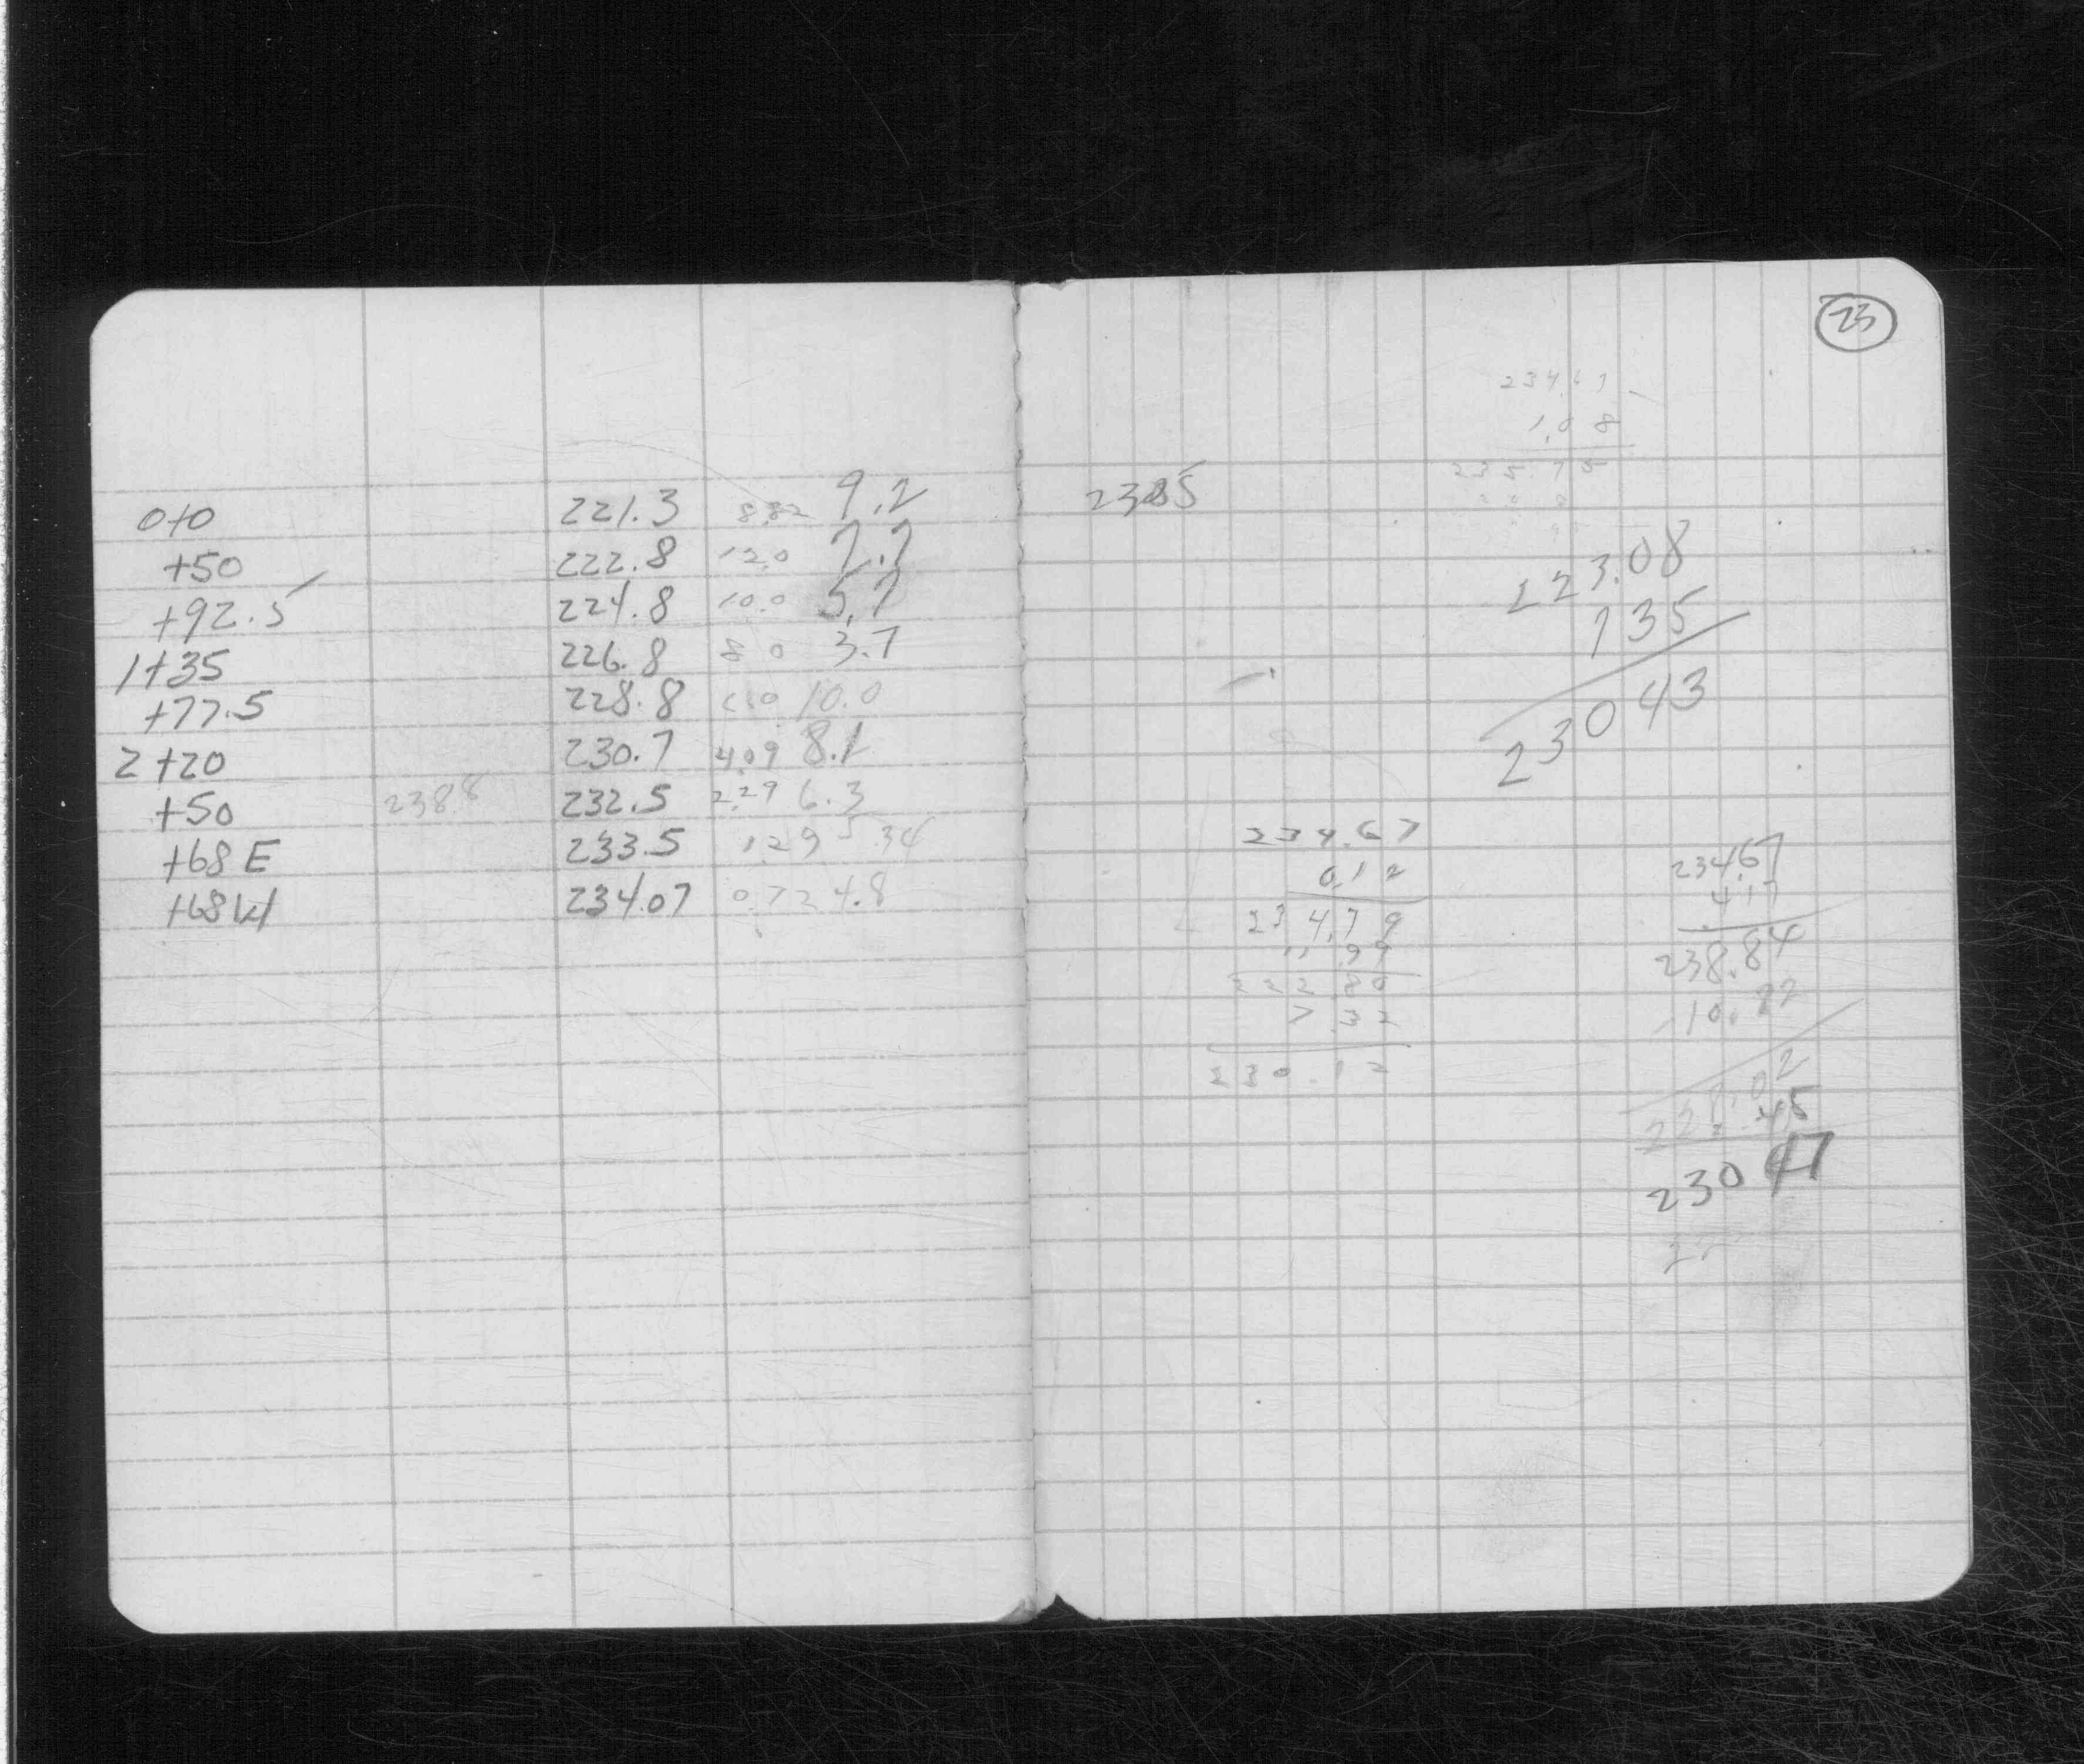 23
0+0 221.3 8.82 9.2
+50 222.8 12.0 7.7
+92.5 224.8 10.0 5.7
1+35 226.8 8 0 3.7
+77.5 228.8 10.0
2+20 230.7 4.09 8.1
+50 238.8 232.5 2.29 6.3
+68 E 233.5 1.29 5.34
+68 W 234.07 0.72 4.8
234.67
1.08
235.75
223.08
735
23043
234.67
0.12
234.79
11.99
222.80
7.32
230.12
234.67
4.17
238.84
10.82
228.02
2.45
230 47